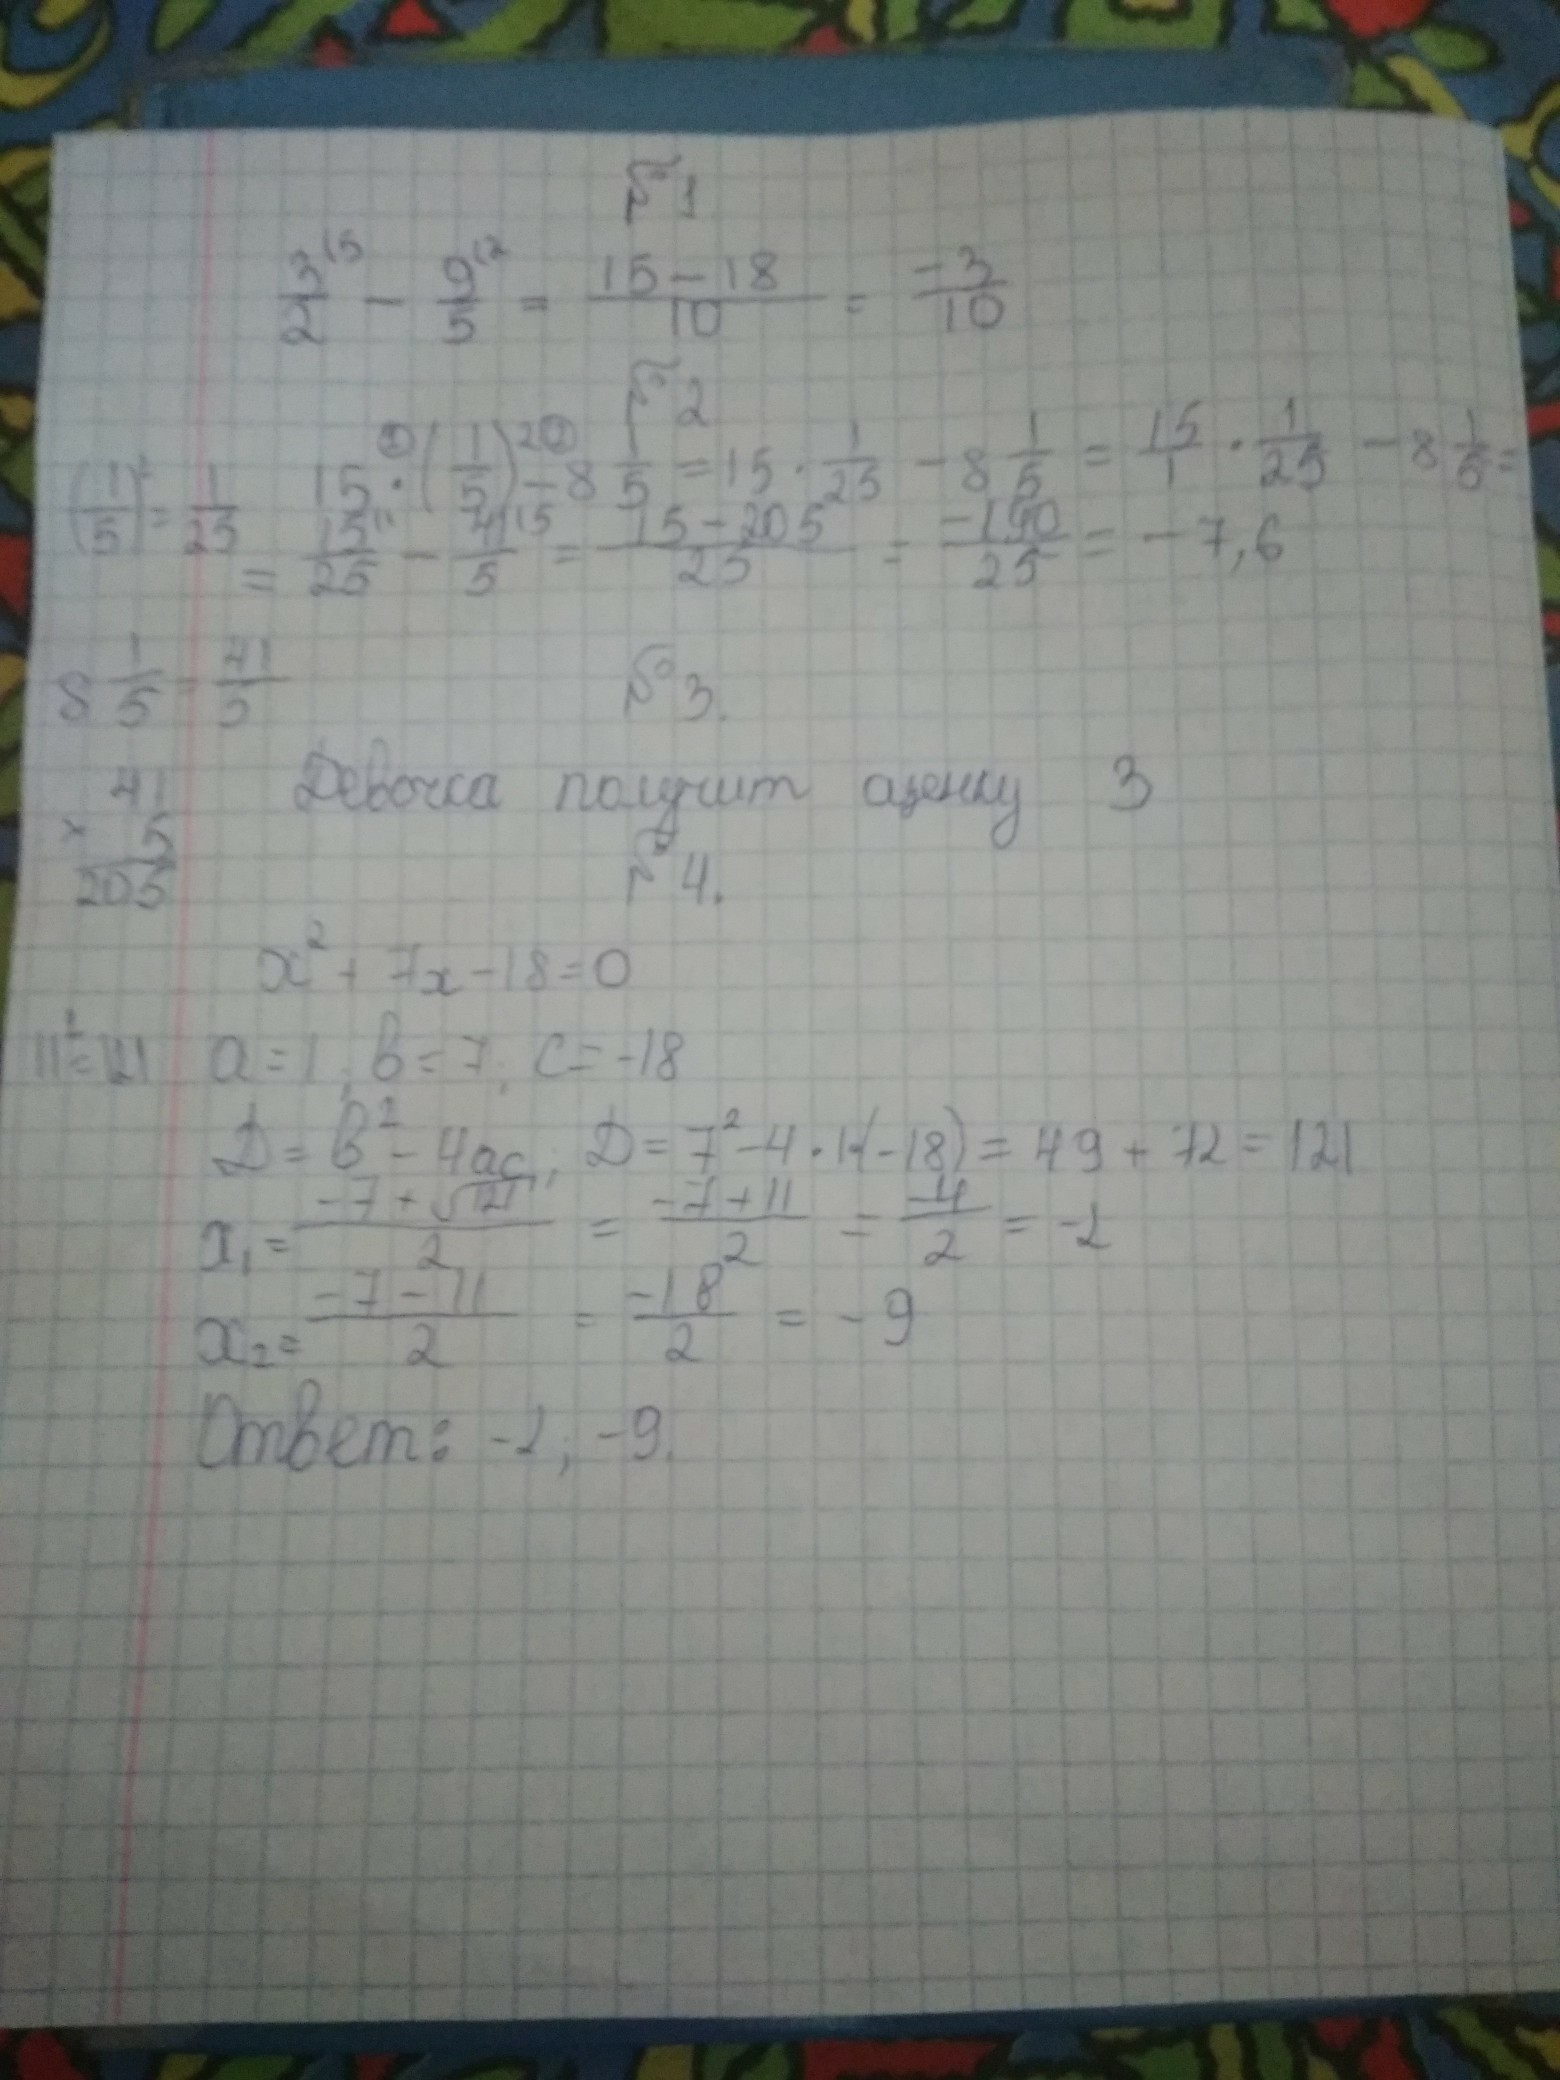 №1
3/2 (5 - 9/5 (2 = 15-18/10 = -3/10
№2
(1/5)² = 1/25 15 · (1/5)² - 8 1/5 = 15 · 1/25 - 8 1/5 = 15/1 · 1/25 - 8 1/5 =
= 15/25 (1 - 41/5 (5 = 15-205/25 = -190/25 = -7,6
8 1/5 = 41/5
№3.
Девочка получит оценку 3
41
× 5
205
№4.
x² + 7x - 18 = 0
11² = 121 a = 1; b = 7; c = -18
D = b² - 4ac; D = 7² - 4 · 1·(-18) = 49 + 72 = 121
x₁ = -7+√121/2 = -7+11/2 = -4/2 = -2
x₂ = -7-11/2 = -18/2 = -9
Ответ: -2; -9.